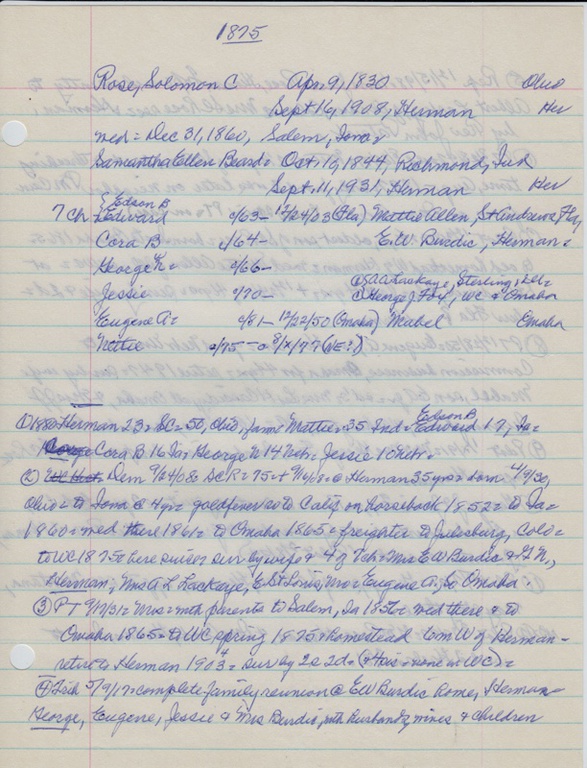 1875
Rose, Solomon C Apr. 9, 1830 Ohio
Sept 16, 1908, Herman Her
med = Dec 31, 1860, Salem, Iowa
Samantha Ellen Beard = Oct. 16, 1844, Richmond, Ind
Sept. 11, 1931, Herman Her
Edson B
7 Ch = Edward c/63- 12/24/03 (Fla) Mattie Allen, St Andrews Fla
Cora B c/64- E.W. Burdic, Herman =
George N = c/66-
① A A Lackaye, Sterling,
Jessie c/70- ② George J. WC & Omaha
Eugene A = c/81- 12/22/50 (Omaha) Mabel Omaha
Nettie c/75- c 8/x/77 (NE?)
① 1880 Herman 23 = SC = 50, Ohio, farm = Mattie = 35 Ind = Edson B Edward 17, Ia =
Cora B 16 Ia = George N 14 Neb = Jessie 10 Neb =
② Dem 9/24/08 = SCR = 75 = + 9/16/8 = @ Herman 35 yrs = born 4/9/30,
Ohio = to Iowa @ 4 yr = goldfever so to Calif on horseback 1852 = to Ia =
1860 = med there 1861 = to Omaha 1865 = freighter to Julesburg, Colo =
to WC 1875 = here since = sur by wife & 4 of 7 ch = Mrs E W Burdic & G. N.,
Herman; Mrs A L Lackaye, E St Louis, Mo = Eugene A., So Omaha =
③ PT 9/17/31 = Mrs = with parents to Salem, Ia 1856 = med there & to
Omaha 1865 = to WC spring 1875 = homestead 10 m W of Herman =
return to Herman 1904 = sur by 2s 2d = (& Hers = none in WC) =
④ 5/9/17 = complete family reunion @ E W Burdic home, Herman =
George, Eugene, Jessie & Mrs Burdic, with husbands, wives & children